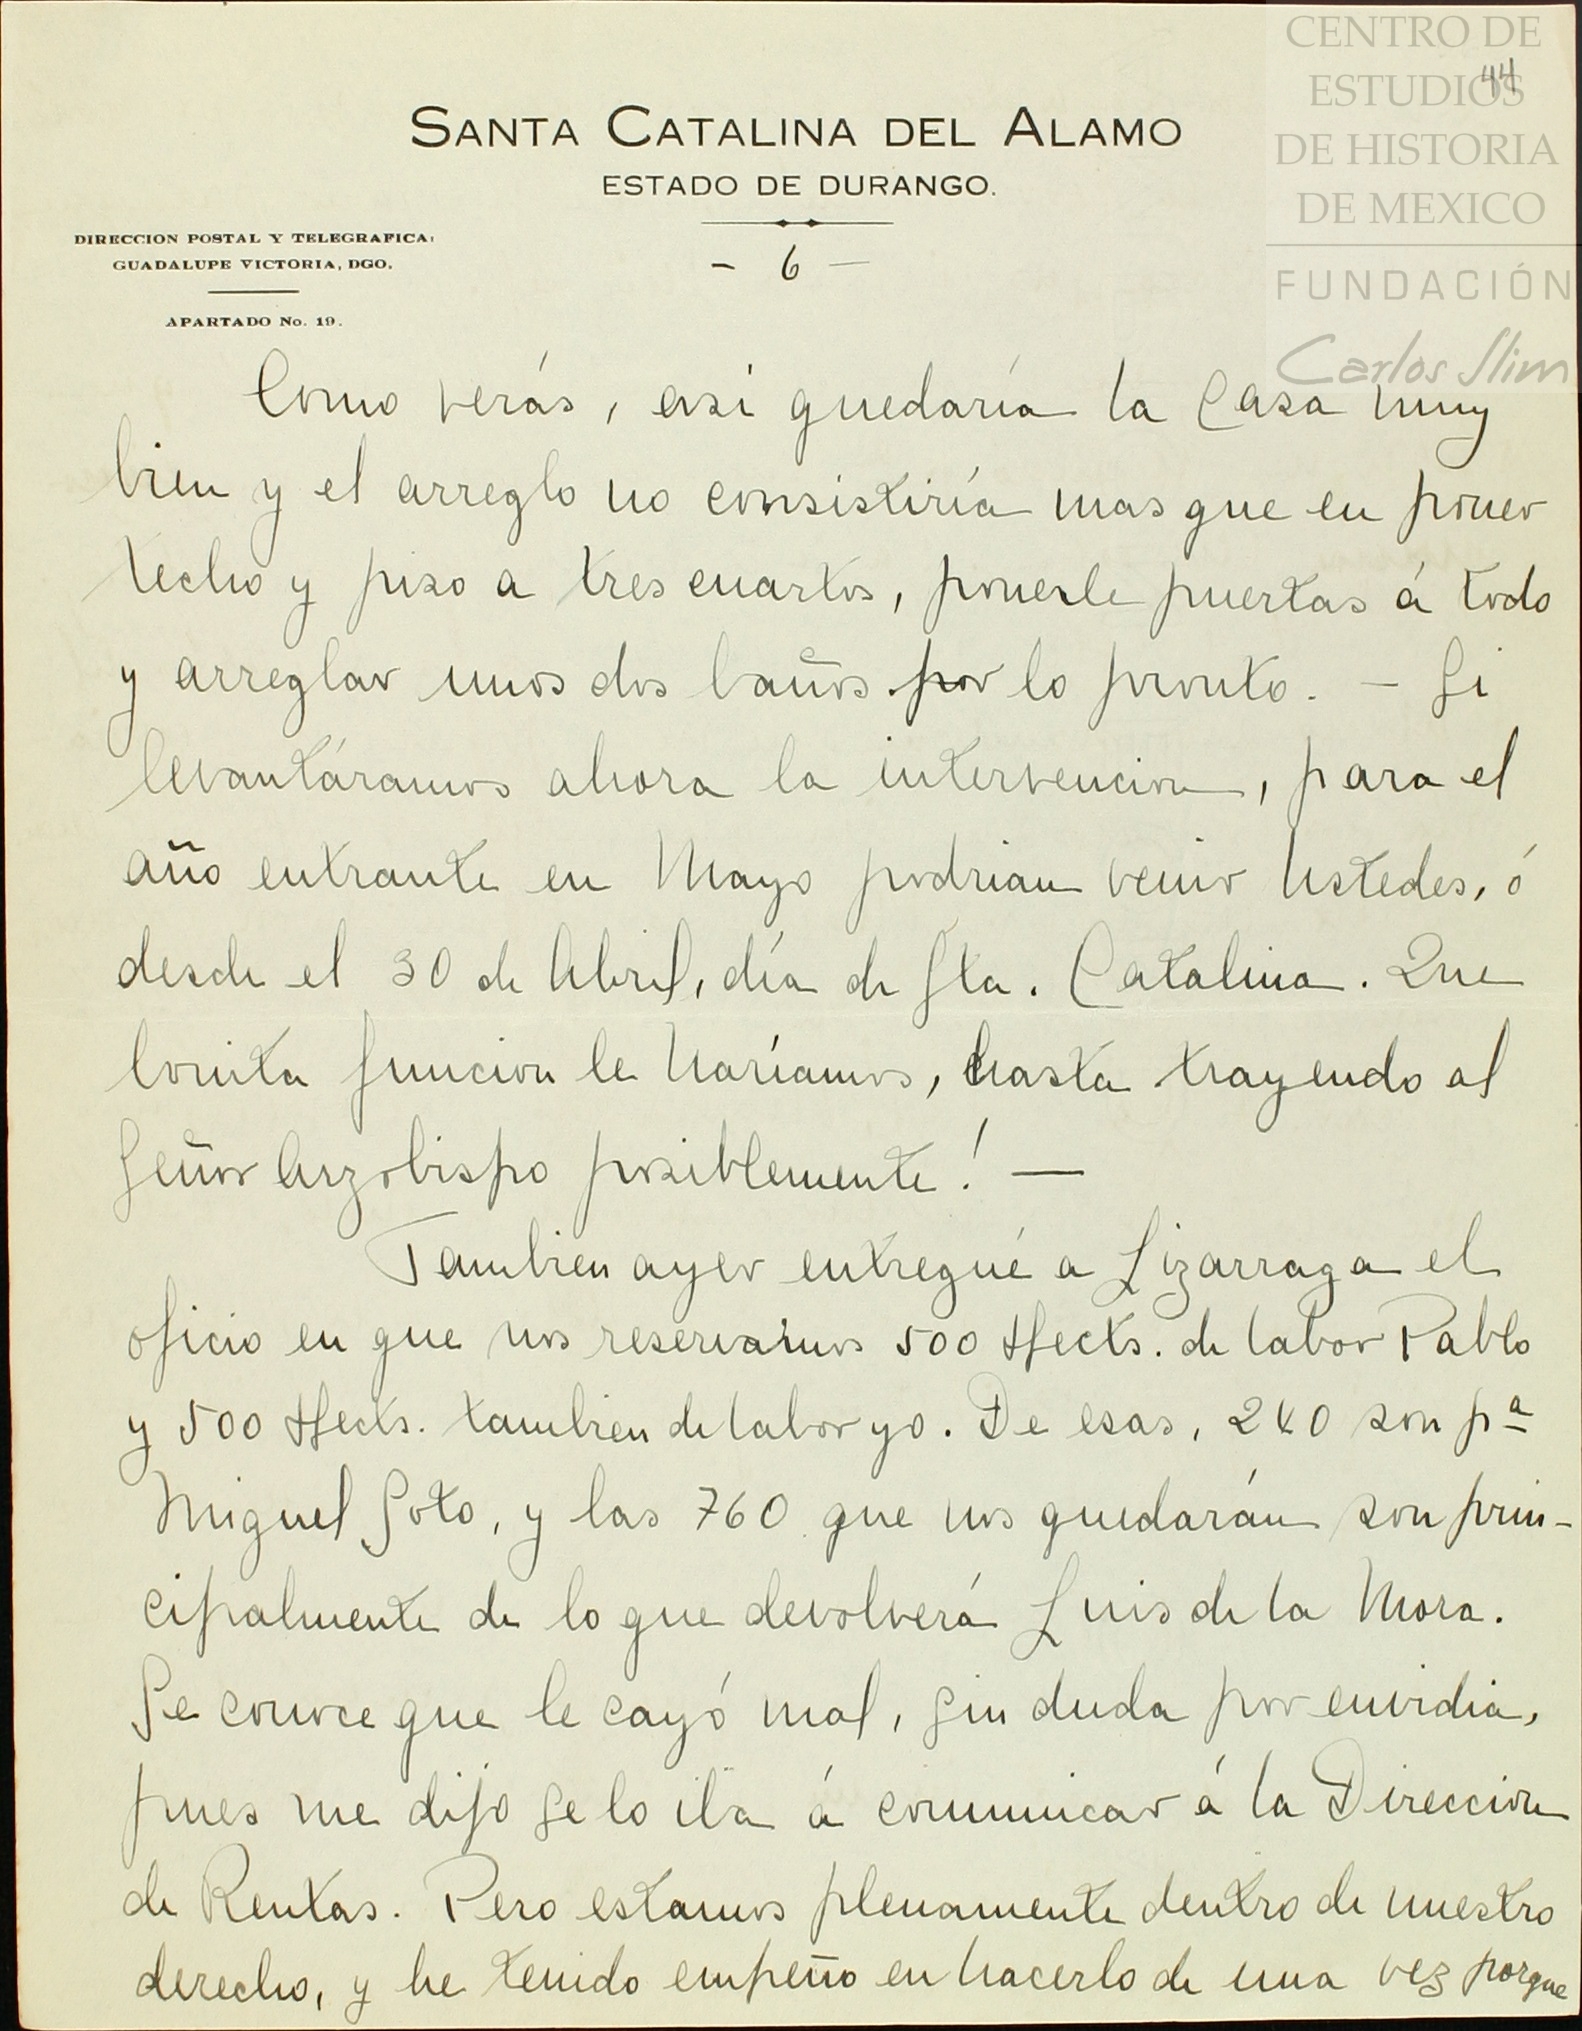 CENTRO DE
ESTUDIOS
DE HISTORIA
DE MEXICO
FUNDACIÓN
Carlos Slim
44
SANTA CATALINA DEL ALAMO
ESTADO DE DURANGO.
DIRECCION POSTAL Y TELEGRAFICA:
GUADALUPE VICTORIA, DGO.
APARTADO No. 19.
- 6 -
Como verás, asi quedaría la Casa muy
bien y el arreglo no consistiría mas que en poner
techo y piso a tres cuartos, ponerle puertas á todo
y arreglar unos dos baños por lo pronto. - Si
levantáramos ahora la intervencion, para el
año entrante en Mayo podrian venir Ustedes, ó
desde el 30 de Abril, día de Sta. Catalina. Que
bonita funcion le haríamos, hasta trayendo al
Señor Arzobispo posiblemente! —
Tambien ayer entregué a Lizarraga el
oficio en que nos reservamos 500 Hects. de labor Pablo
y 500 Hects. tambien de labor yo. De esas, 240 son pª
Miguel Soto, y las 760 que nos quedarán son prin-
cipalmente de lo que devolverá Luis de la Mora.
Se conoce que le cayó mal, sin duda por envidia,
pues me dijo se lo iba á comunicar á la Direccion
de Rentas. Pero estamos plenamente dentro de nuestro
derecho, y he tenido empeño en hacerlo de una vez porque